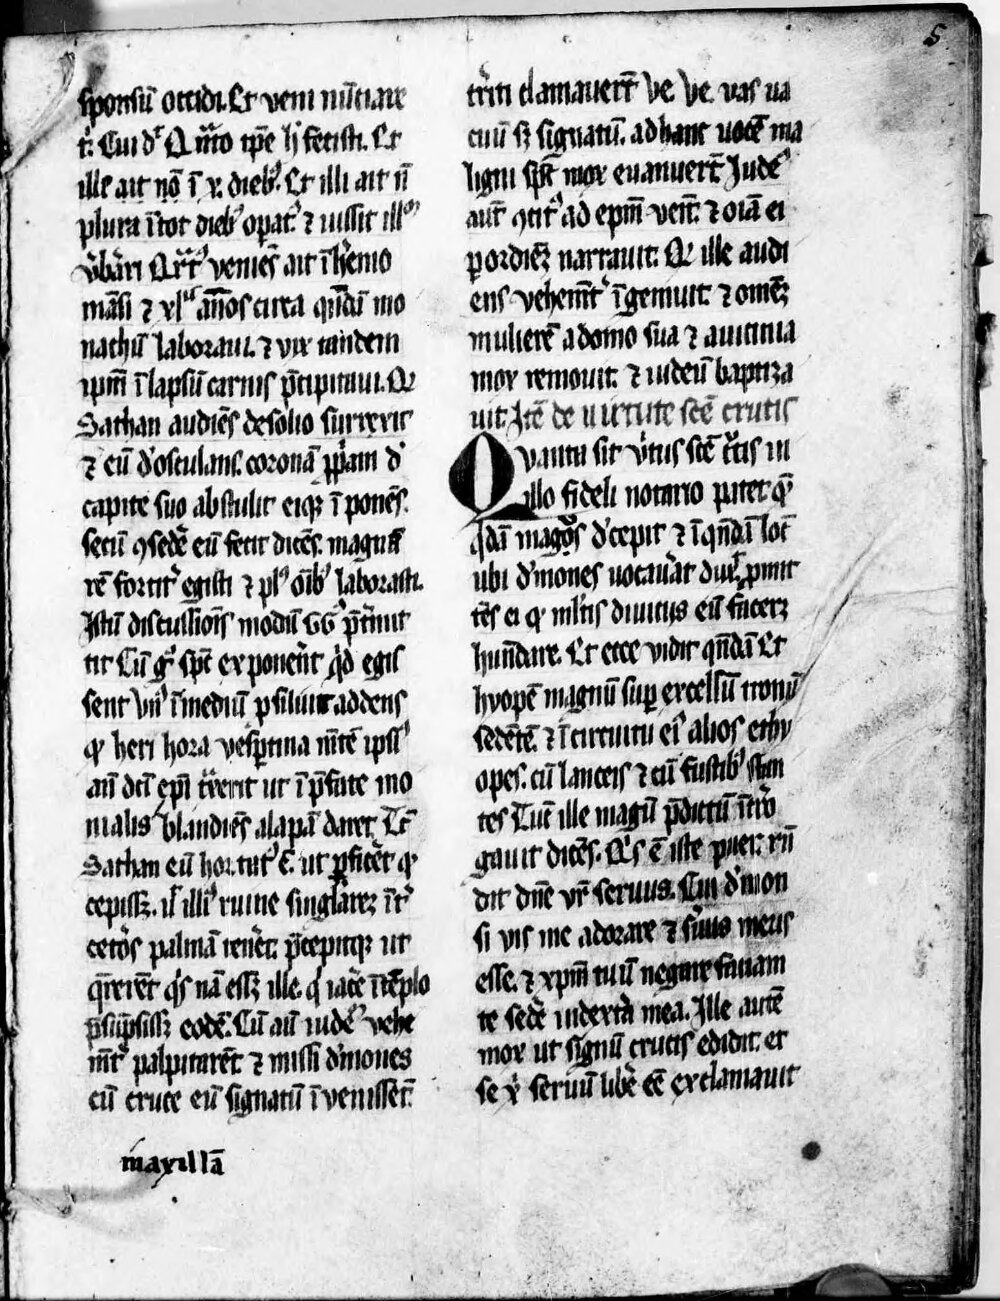 5
sponsū occidi. Et veni nūciare
t̄. Cui d̓r Q̄nto tp̄e h̓ fecisti. Et
ille ait nō ī x. dieb̓. Et illi ait n̄
plura ītot dieb̓ opat̓. ⁊ iussit ill̓
v̓b̓ari Qrt̓ veniēs ait ī h̓emo
māsi ⁊ xl̓ ānos circa qn̄dā mo
nachū laboraui. ⁊ vix tandem
ip̄m ī lapsū carnis p̄cipitaui. Qd̓
Sathan audiēs de solio surrexit
⁊ eū d̓osculans. coronā pp̓am d̓
capite suo abstulit eiq; ī ponēs.
secū ꝯsed̓e eū fecit dicēs. magnā
rē fortit̓ egisti ⁊ pl̓ oīb̓ laborasti.
Istū discussiōis modū GG̓ p̄t̓mit
tit Cū g̓ sp̄c exponer̄t q̓d egis
sent vn̓ ī mediū ꝓsiliuit addens
qd̓ heri hora vesp̄tina m̄tē ipsi̓
an̄ dc̄i ep̄i t̓xerit ut ī p̄fate mo
nialis blandiēs alapā daret. Tc̄
Sathan eū hortat̓ ē. ut ꝑficēt qd̓
cepiss;. ut illi̓ ruine singlarē; īt̓
cet̓os palmā tenēt. p̄cepitq; ut
q̄rerēt q̓s nā ess; ille. q̓ iac̓e ī tēplo
p̄sūpsiss; eodē. Cū aū iude̓ vehe
m̄t̓ palpitarēt ⁊ missi d̓mones
cū cruce eū signatū īvenissēt.
maxillā
t̓riti clamauer̄t ve ve vas va
cuū s; signatū. ad hanc uocē ma
ligni sp̄s mox euanuer̄t Jude̓
aūt ꝯcit̓ ad ep̄m ven̄t. ⁊ oīa ei
ꝑ ordinē; narrauit. Qd̓ ille audi
ens vehemt̓ īgemuit. ⁊ omē;
mulierē a domo sua ⁊ a uicinia
mox remouit. ⁊ iudeū baptiza
uit Itē de uirtute scē crucis
Quanta sit v̓tus scē c̓cis in
illo fideli notario patet q̄
q̓dā magos d̓cepit ⁊ ī qn̄dā locū
ubi d̓mones uocau̓at dux̓. ꝓmit
tēs ei qd̓ ml̓tis diuitiis eū facer;
hūndare. Et ecce vidit qn̄dā et
hyopē magnū sup̱ excelsū tronū
sedētē. ⁊ ī circuitu ei̓ alios ethy
opes. cū lanceis ⁊ cū fustib̓ stan
tes Tūc ille magū p̄dictū īt̓ro
gauit dicēs. Q̓s ē iste puer. rn̄
dit dn̄e vr̄ seruus. Cui d̓mon
si vis me adorare ⁊ s̓uus meus
esse. ⁊ xp̄m tuū negare faciam
te sed̓e indext̓a mea. Ille autē
mox ut signū crucis edidit. et
se x̓ seruū lib̓e eē exclamauit